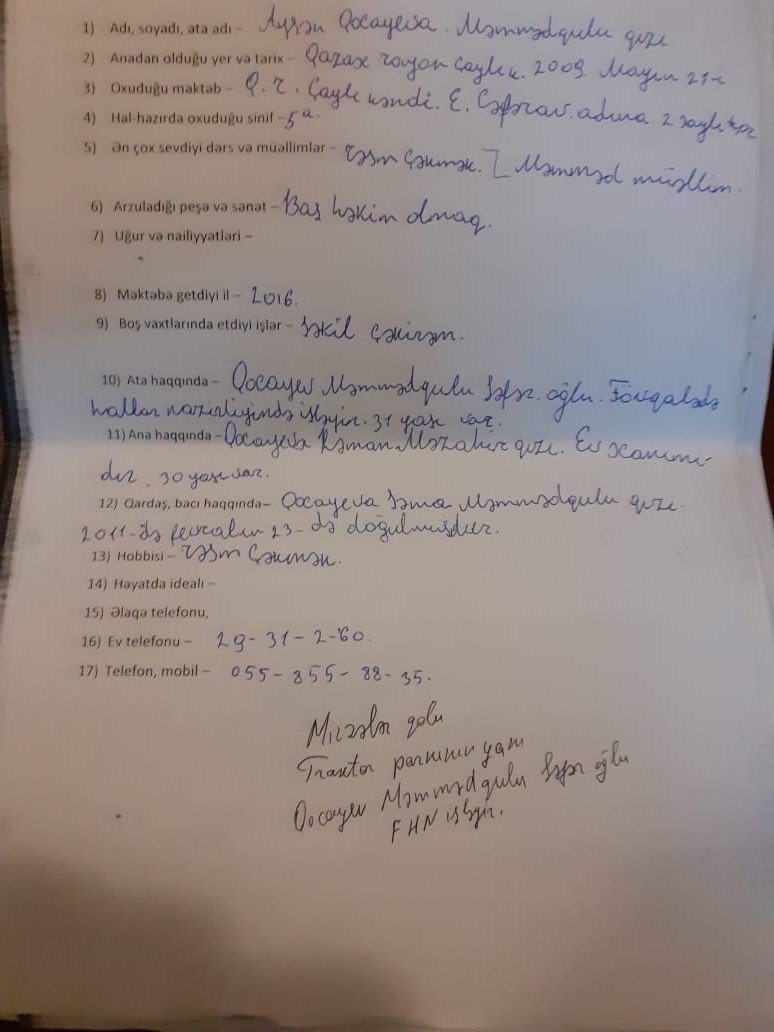 1) Adı, soyadı, ata adı – Aysən Qocayeva. Məmmədqulu qızı
2) Anadan olduğu yer və tarix – Qazax rayon Çaylı k. 2009. Mayın 21-i
3) Oxuduğu məktəb – Q. r. Çaylı kəndi. E. Cəfərov. adına 2 saylı
4) Hal-hazırda oxuduğu sinif – 5ᵃ.
5) Ən çox sevdiyi dərs və müəllimlər – rəsm çəkmək. Məmməd müəllim.
6) Arzuladığı peşə və sənət – Baş həkim olmaq.
7) Uğur və nailiyyətləri –
8) Məktəbə getdiyi il – 2016.
9) Boş vaxtlarında etdiyi işlər – şəkil çəkirəm.
10) Ata haqqında – Qocayev Məmmədqulu Səfər oğlu. Fövqaladə
hallar nazirliyində işləyir. 31 yaşı var.
11) Ana haqqında – Qocayeva Kəmalə Məzahir qızı. Ev xanımı-
dır. 30 yaşı var.
12) Qardaş, bacı haqqında – Qocayeva Səma Məmmədqulu qızı.
2011-də fevralın 23-də doğulmuşdur.
13) Hobbisi – rəsm çəkmək.
14) Həyatda idealı –
15) Əlaqə telefonu,
16) Ev telefonu – 29-31-2-60.
17) Telefon, mobil – 055-855-88-35.
Mirzələr yolu
Traktor parkının yanı
Qocayev Məmmədqulu Səfər oğlu
FHN işləyir.